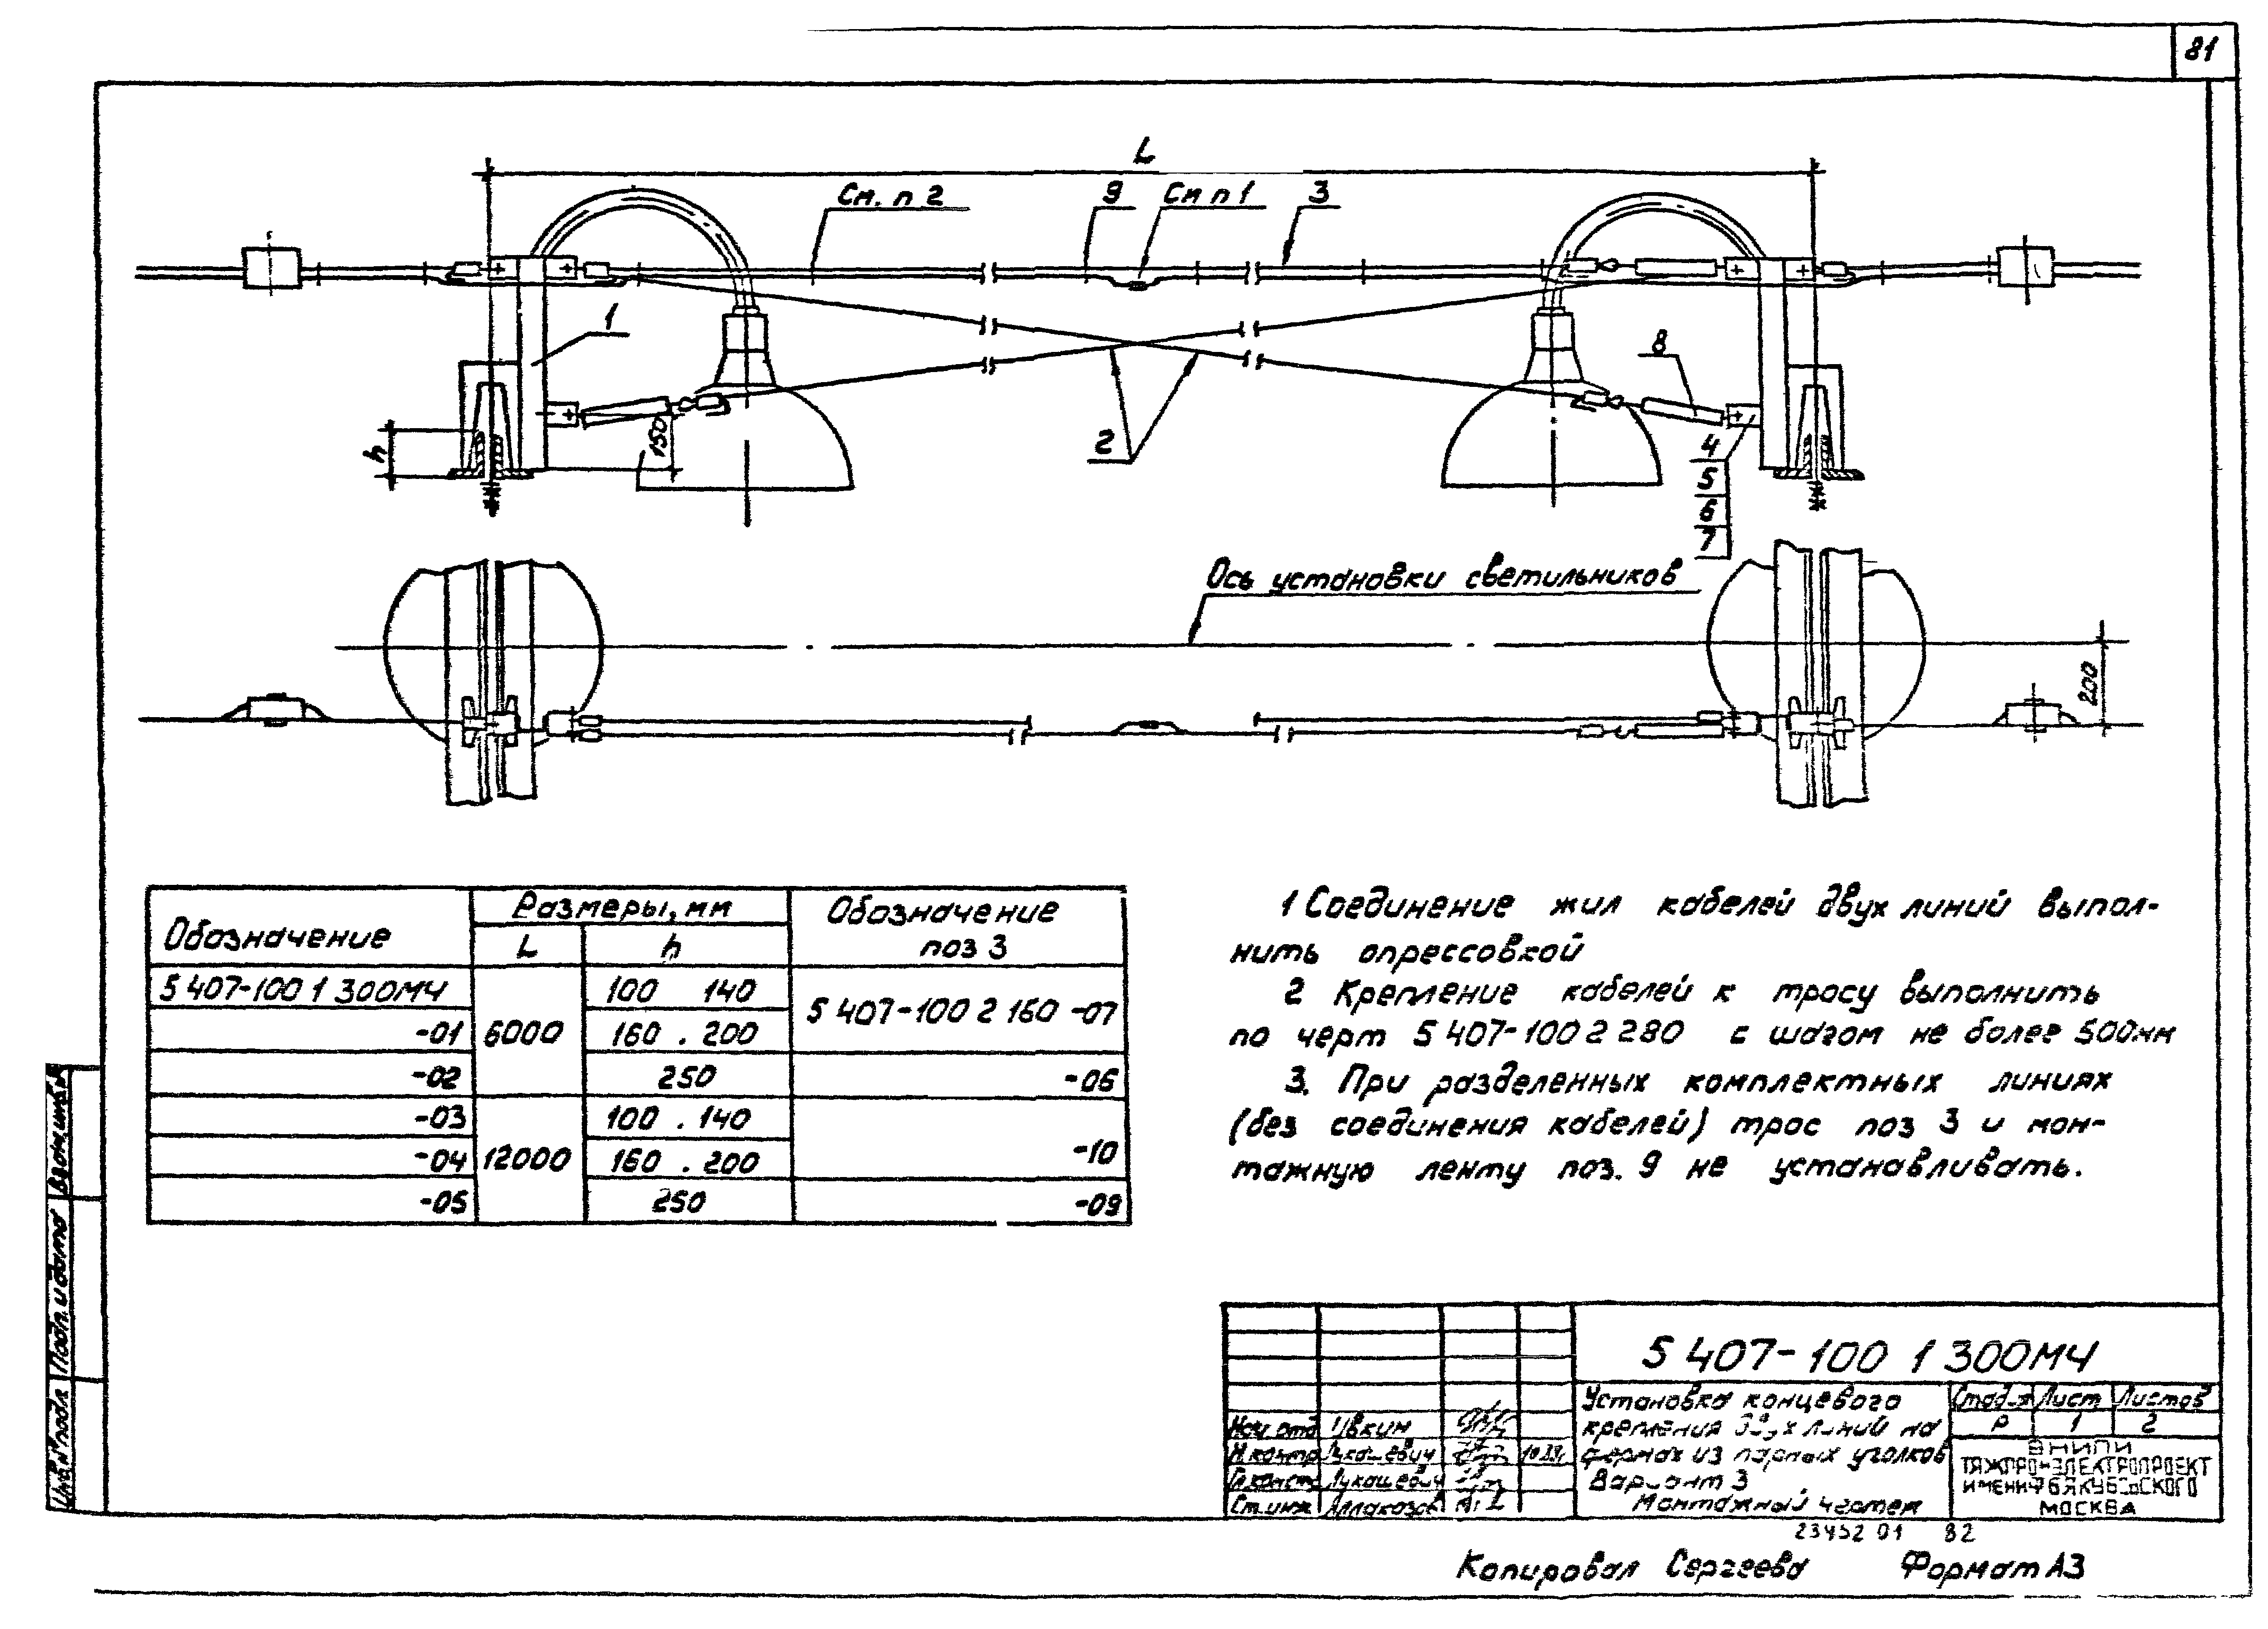 81
L
См. п 2
9
См п 1
3
1
8
h
150
2
4
5
6
7
Ось установки светильников
200
Обозначение
Размеры, мм
L
h
Обозначение
поз 3
5 407-100 1 300МЧ
6000
100 140
5 407-100 2 160 -07
-01
160 . 200
-02
250
-06
-03
12000
100 . 140
-10
-04
160 . 200
-05
250
-09
1 Соединение жил кабелей двух линий выпол-
нить опрессовкой
2 Крепление кабелей к тросу выполнить
по черт 5 407-100 2 280 с шагом не более 500мм
3. При разделенных комплектных линиях
(без соединения кабелей) трос поз 3 и мон-
тажную ленту поз. 9 не устанавливать.
5 407-100 1 300МЧ
Установка концевого
крепления двух линий на
фермах из парных уголков
Вариант 3
Монтажный чертеж
Стадия Лист Листов
Р 1 2
ВНИПИ
ТЯЖПРОМЭЛЕКТРОПРОЕКТ
ИМЕНИ Ф Б ЯКУБОВСКОГО
МОСКВА
Нач отд Ивкин
Н контр Лукашевич
Гл констр Лукашевич
Ст. инж
Инв № подл
Подп. и дата
Взам инв №
23452 01 82
Копировал Сергеева Формат А3